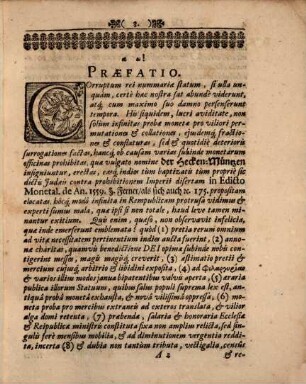 PRÆFATIO.
Corruptum rei nummariæ statum, si ulla un-
quàm, certè hæc nostra sat abundè viderunt,
atq; cum maximo suo damno persenserunt
tempora. His siquidem, lucri aviditate, non
solùm infinitæ probæ monetæ pro viliori per-
mutationes & collationes, ejusdemq; fractio-
nes & conflaturæ, sed & quotidiè deterioris
surrogationes factæ, hancq; ob causam variæ subinde monetarum
officinæ prohibitæ, quæ vulgato nomine der Hecken-Müntzen
insigniuntur, erectæ, earq; indiò tum baptizatæ tum propriè sic
dictis Judæis contra prohibitionem Imperii disertam in Edicto
Monetal. de An. 1559. §. Fernerals sich auch &c. 175. propalam
elocatæ, hisq; modis infinita in Rempublicam protrusa vidimus &
experti sumus mala, quæ ipsi si non totale, haud leve tamen minan-
tur exitium. Quid enim, quæso, non observavit infelicita,
quæ inde emerserunt emblemata! quòd (1) pretia rerum omnium
ad vitæ necessitatem pertinentium indies aucta fuerint, (2) anno-
næ charitas, quamvis benedictione DEI optima subinde nobis conti-
gerint messes, magis magisq; creverit, (3) æstimatio pretii &
mercium cujusq; arbitrio & libidini exposita, (4) ad
& variæ illius modos janua bipatentibus valvis aperta, (5) æraria
publica illorum Statuum, quibus salus populi suprema lex est, anti-
quâ probâ monetâ exhausta, & novâ vilissimâ oppressa, (6) mone-
ta proba pro mercibus extraneis ad exteros translata, & vilior
alga domi retenta, (7) præbenda, salaria & honoraria Ecclesiæ
& Reipublicæ ministris constituta fixa non amplius relicta, sed sin-
gulis ferè mensibus mobilia, & ad diminutionem vergentia reddi-
ta, incerta (8) & dubia non tantùm tributa, vectigalia, census
A 2 & re-